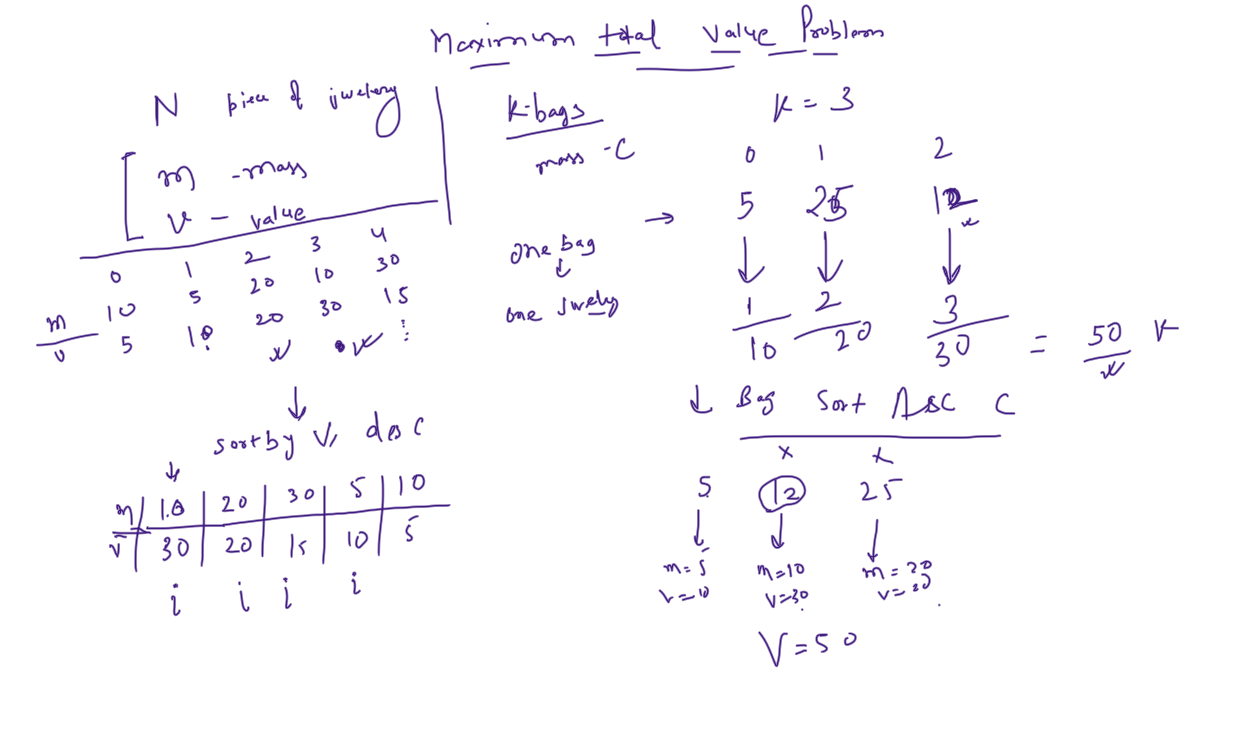 Maximum total value Problem
N piece of jwelery
m - mass
v - value
0 1 2 3 4
m 10 5 20 10 30
v 5 10 20 30 15
sort by V, desc
m 10 20 30 5 10
v 30 20 15 10 5
i i i i
k-bags
mass - C
one bag
one Jwely
K = 3
0 1 2
5 25 12
1 2 3
10 20 30 = 50
Bag Sort Asc C
x x
5 12 25
m=5 m=10 m=20
v=10 v=30 v=20
V=50